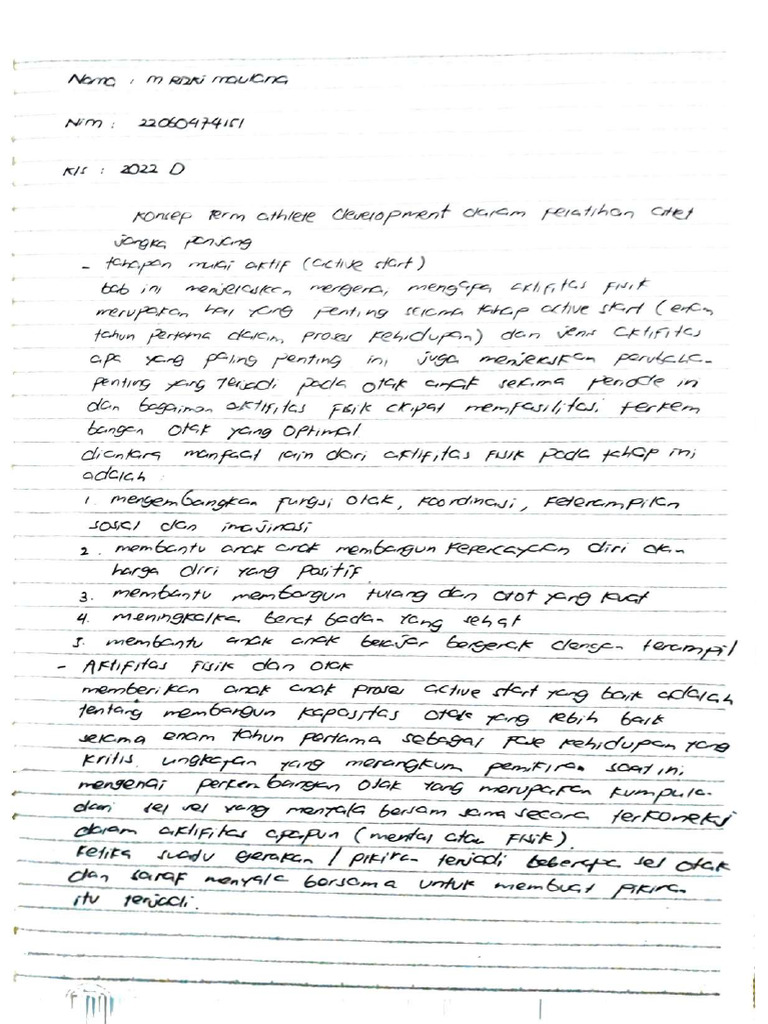 Nama : M Rizki Maulana
Nim : 22060474151
Kls : 2022 D
Konsep term athlete development dalam pelatihan atlet
jangka panjang
- tahapan mulai aktif (active start)
bab ini menjelaskan mengenai, mengapa aktifitas fisik
merupakan hal yang penting selama tahap active start (enam
tahun pertama dalam proses kehidupan) dan jenis aktifitas
apa yang paling penting ini, juga menjelaskan perubaha-
penting yang terjadi pada otak anak selama periode in
dan bagaiman aktifitas fisik dapat memfasilitasi perkem
bangan otak yang optimal
diantara manfaat lain dari aktifitas fisik pada tahap ini
adalah :
1. mengembangkan fungsi otak, koordinasi, keterampilan
sosial dan imajinasi
2. membantu anak anak membangun kepercayaan diri dan
harga diri yang positif
3. membantu membangun tulang dan otot yang kuat
4. meningkatka berat badan yang sehat
5. membantu anak anak belajar bergerak dengan terampil
- Aktifitas fisik dan otak
memberikan anak anak proses active start yang baik adalah
tentang membangun kapasitas otak yang lebih baik
selama enam tahun pertama sebagai fase kehidupan yang
kritis. ungkapan yang merangkum pemikiran saat ini
mengenai perkembangan otak yang merupakan kumpula-
dari sel sel yang menyala bersam sama secara terkoneksi
dalam aktifitas apapun (mental atau fisik).
ketika suatu gerakan / pikiran terjadi beberapa sel otak
dan saraf menyala bersama untuk membuat pikiran
itu terjadi.